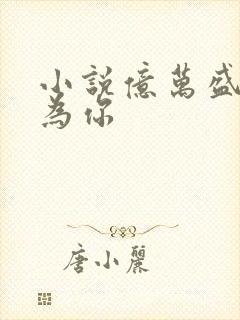 小說億萬盛
為你
唐小麗